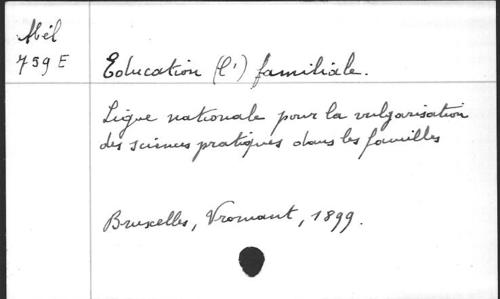 Mél
759 E
Education (l') familiale.
Ligue nationale pour la vulgarisation
des sciences pratiques dans les familles
Bruxelles, Vromant, 1899.